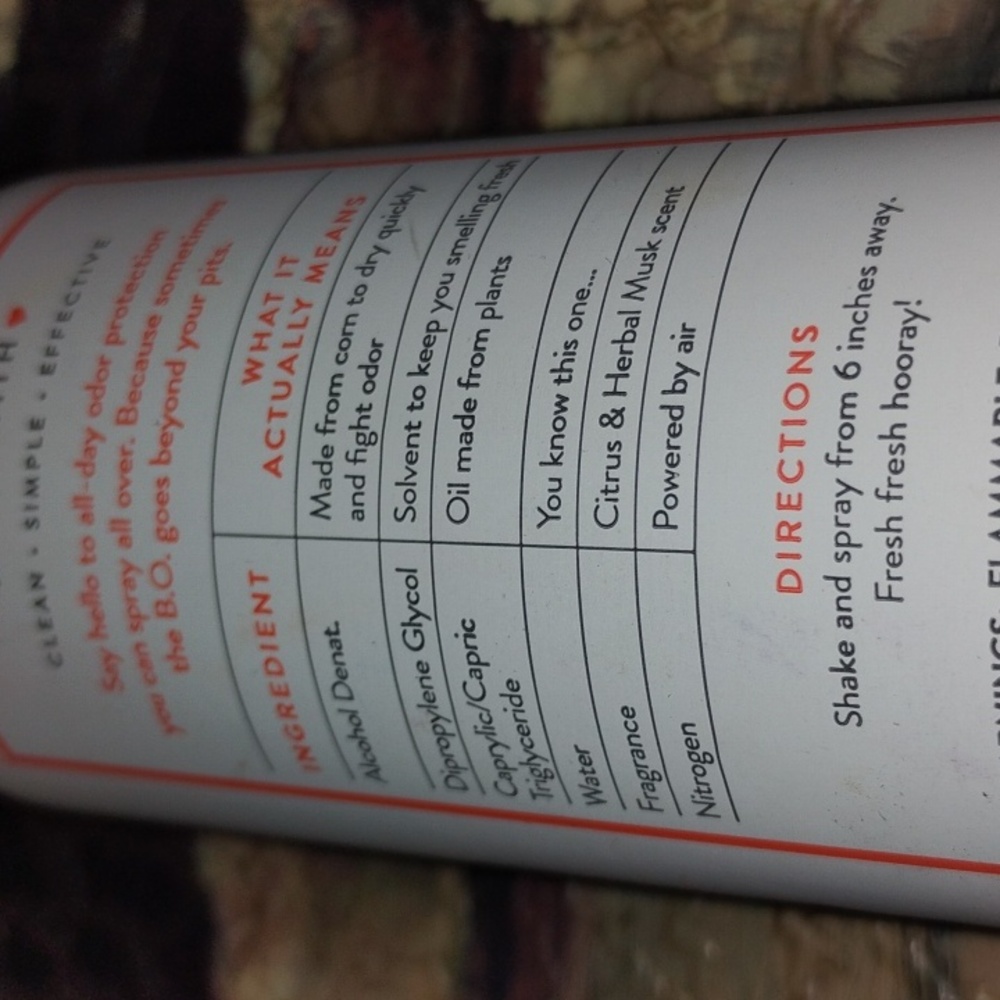 CLEAN • SIMPLE • EFFECTIVE
Say hello to all-day odor protection
you can spray all over. Because sometimes
the B.O. goes beyond your pits.
INGREDIENT
WHAT IT
ACTUALLY MEANS
Alcohol Denat.
Made from corn to dry quickly
and fight odor
Dipropylene Glycol
Solvent to keep you smelling fresh
Caprylic/Capric
Triglyceride
Oil made from plants
Water
You know this one...
Fragrance
Citrus & Herbal Musk scent
Nitrogen
Powered by air
DIRECTIONS
Shake and spray from 6 inches away.
Fresh fresh hooray!